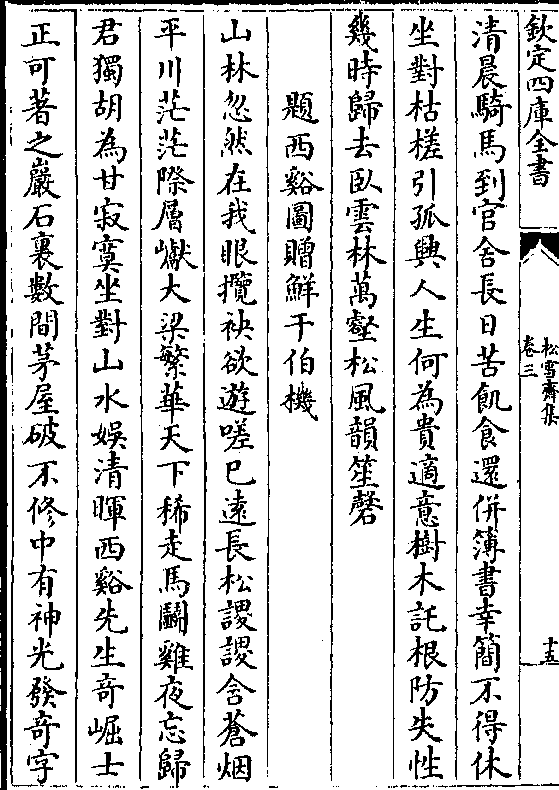 欽定四庫全書
松雪齋集
卷三
十五
清晨騎馬到官舍長日苦飢食還併簿書幸簡不得休
坐對枯槎引孤興人生何為貴適意樹木託根防失性
幾時歸去臥雲林萬壑松風韻笙磬
題西谿圖贈鮮于伯機
山林忽然在我眼攬袂欲遊嗟已遠長松謖謖含蒼烟
平川茫茫際層巘大梁繁華天下稀走馬鬭雞夜忘歸
君獨胡為甘寂寞坐對山水娛清暉西谿先生竒崛士
正可著之巖石裏數間茅屋破不修中有神光發竒字